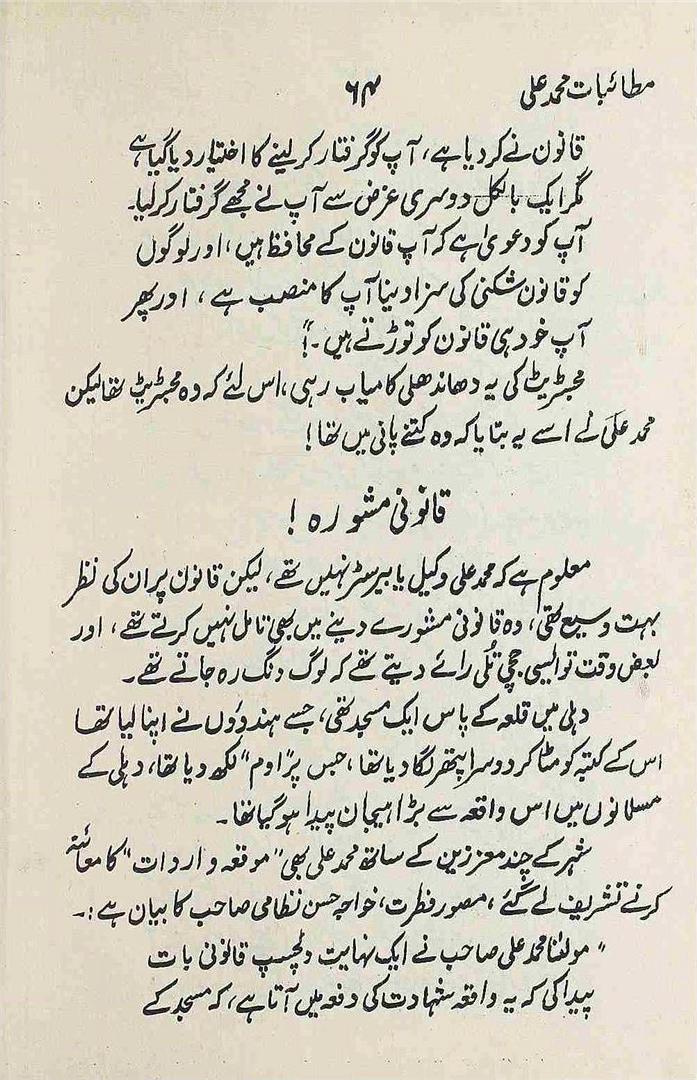 مطائبات محمد علی ۶۴
قانون نے کر دیا ہے، آپ کو گرفتار کر لینے کا اختیار دیا گیا ہے
مگر ایک بالکل دوسری غرض سے آپ نے مجھے گرفتار کر لیا۔
آپ کو دعویٰ ہے کہ آپ قانون کے محافظ ہیں، اور لوگوں
کو قانون شکنی کی سزا دینا آپ کا منصب ہے، اور پھر
آپ خود ہی قانون کو توڑتے ہیں۔!"
مجسٹریٹ کی یہ دھاندھلی کامیاب رہی، اس لئے کہ وہ مجسٹریٹ تھا لیکن
محمد علی نے اسے یہ بتایا کہ وہ کتنے پانی میں تھا!
قانونی مشورہ!
معلوم ہے کہ محمد علی وکیل یا بیرسٹر نہیں تھے، لیکن قانون پر ان کی نظر
بہت وسیع تھی، وہ قانونی مشورے دینے میں بھی تامل نہیں کرتے تھے، اور
بعض وقت تو ایسی جچی تُلی رائے دیتے تھے کہ لوگ دنگ رہ جاتے تھے۔
دہلی میں قلعہ کے پاس ایک مسجد تھی، جسے ہندوؤں نے اپنا لیا تھا
اس کے کتبہ کو مٹا کر دوسرا پتھر لگا دیا تھا، جس پر "اوم" لکھ دیا تھا، دہلی کے
مسلمانوں میں اس واقعہ سے بڑا ہیجان پیدا ہو گیا تھا۔
شہر کے چند معززین کے ساتھ محمد علی بھی "موقعہ واردات" کا معائنہ
کرنے تشریف لے گئے، مصور فطرت، خواجہ حسن نظامی صاحب کا بیان ہے:۔
"مولٰنا محمد علی صاحب نے ایک نہایت دلچسپ قانونی بات
پیدا کی کہ یہ واقعہ شہادت کی دفعہ میں آتا ہے، کہ مسجد کے